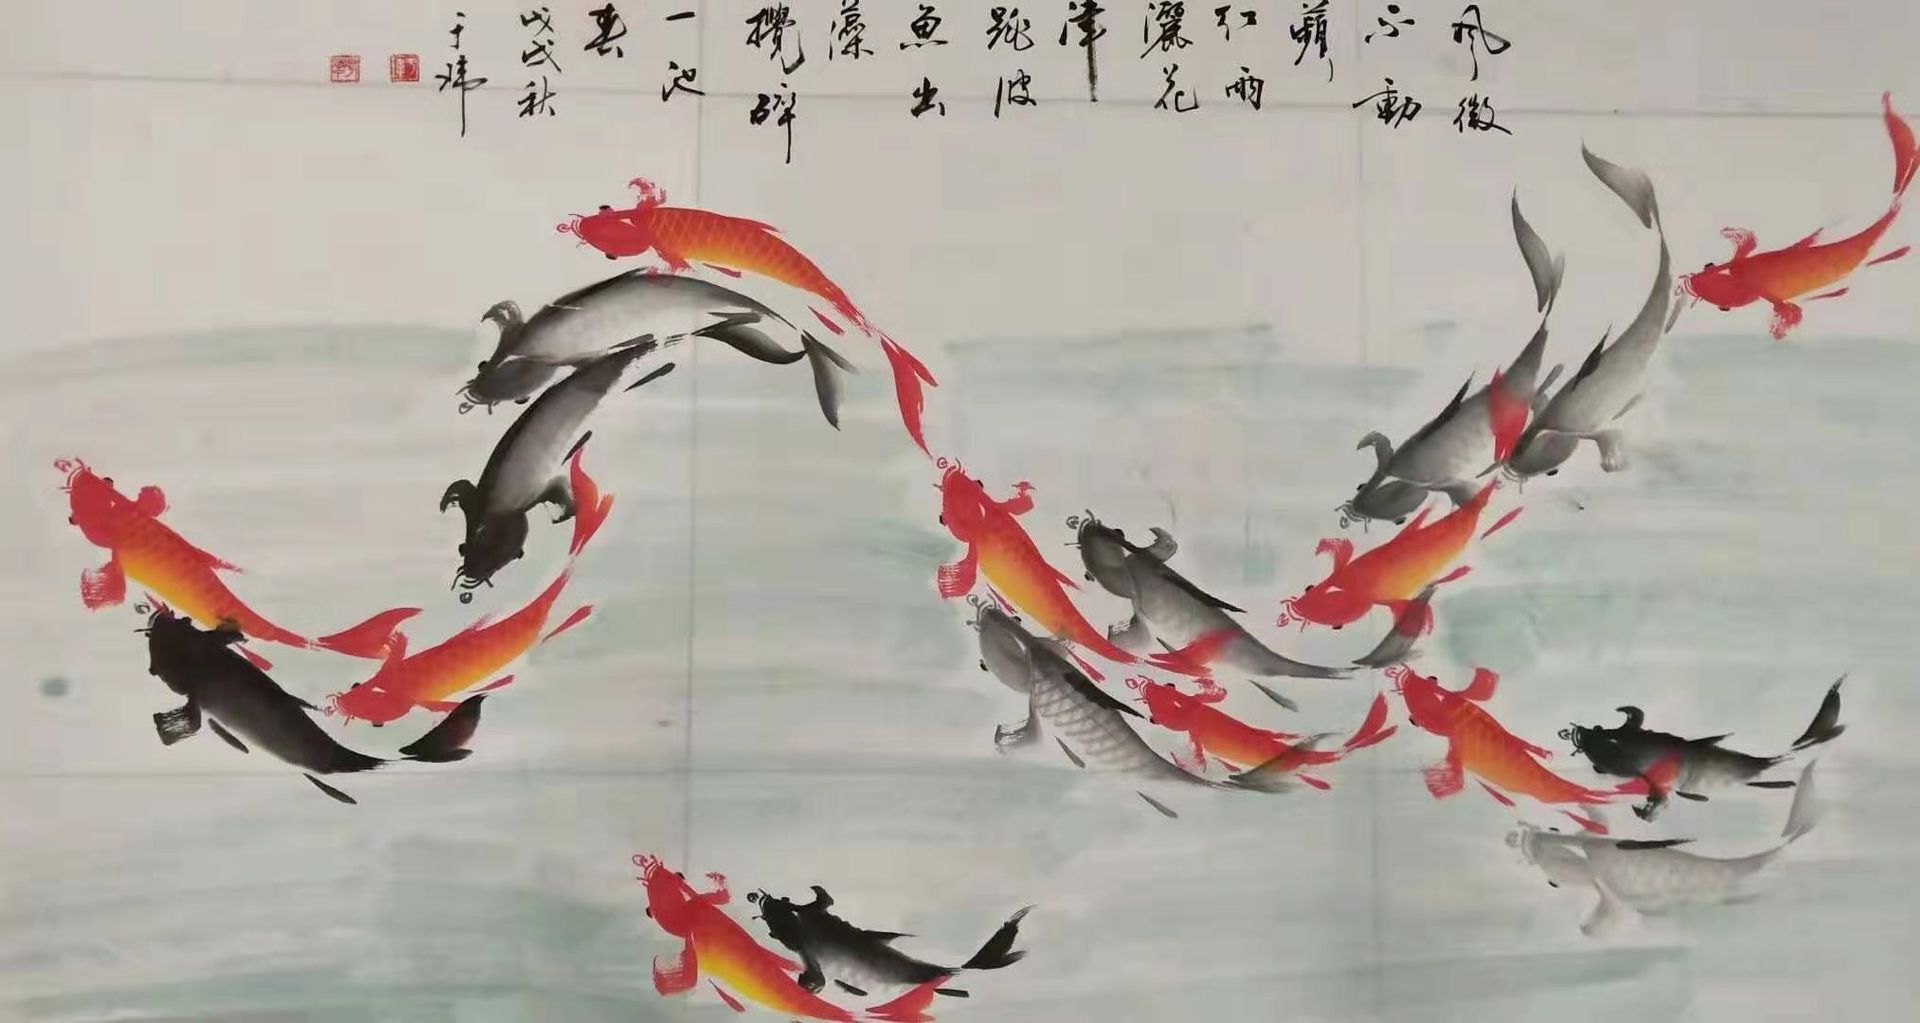 風微
不動
蘋
紅雨
灑花
津
跳波
魚出
藻
攪碎
一池
春
戊戌秋
于瑋